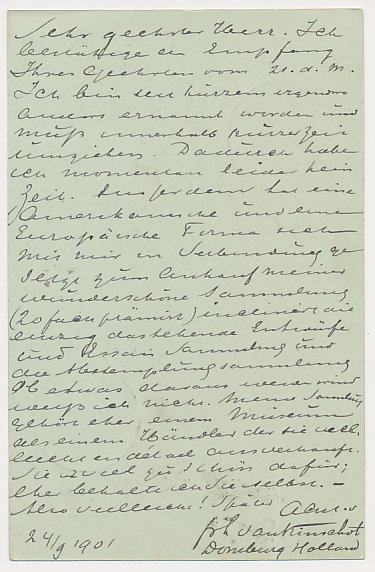 Sehr geehrter Herr. Ich
bestätige den Empfang
Ihres Geehrten vom 21. d. M.
Ich bin seit kurzem irgendwo
anders ernannt worden und
muß innerhalb kurzer Zeit
umziehen. Dadurch habe
ich momentan leider kein
Zeit. Ausserdem hat eine
Amerikanische und eine
Europäische Firma sich
mit mir in Verbindung ge
setzt zum Ankauf meiner
wunderschöne Sammlung
(20 fach prämirt) die
einzig dastehende Entwürfe
und Essais Sammlung und
die Abstemplungsammlung
Ob etwas daraus werden wird
weiß ich nicht. Meine Sammlung
gehört eher einem Museum
als einem Händler der sie viel
leicht en detail ausverkaufe.
Sie ist viel zu schön dafür;
eher behalte ich sie selber. –
Also vielleicht später
24/9 1901
van Kinschot
Domburg Holland